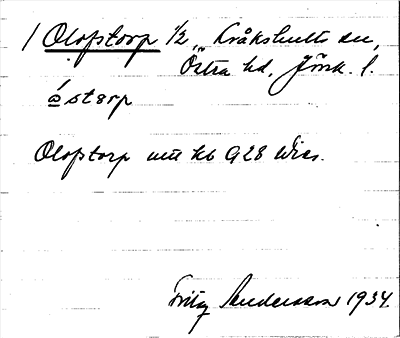 / Olofstorp 1/2, Kråkshults sn,
Östra hd, Jönk. l.
ós​tərp
Olofstorp utt kb G28 Wiss.
Fritz Andersson 1934.